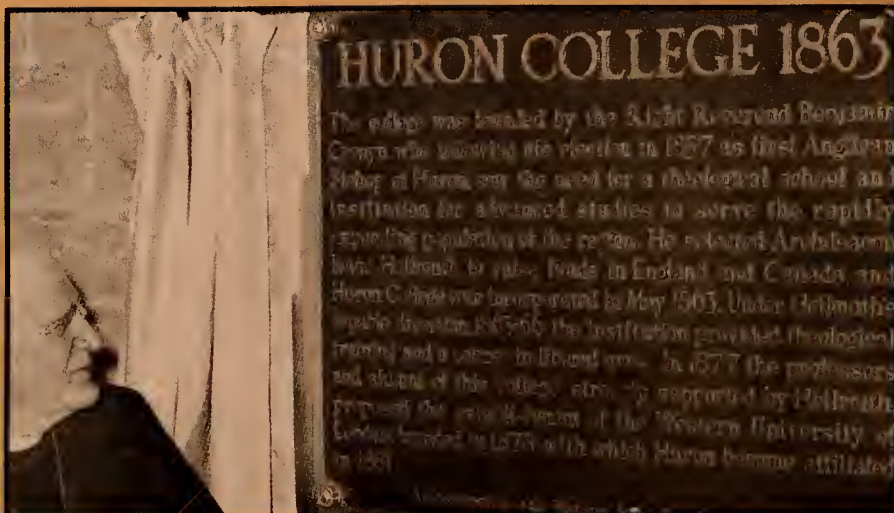 HURON COLLEGE 1863
The college was founded by the Right Reverend Benjamin
Cronyn who following his election in 1857 as first Anglican
Bishop of Huron, saw the need for a theological school and
institution for advanced studies to serve the rapidly
expanding population of the region. He selected Archdeacon
Isaac Hellmuth to raise funds in England and Canada and
Huron College was incorporated in May 1863. Under Hellmuth's
the institution provided theological
training and a course in liberal arts. In 1877 the professors
and alumni of this college, strongly supported by Hellmuth
proposed the establishment of the Western University of
London, founded in 1878, with which Huron became affiliated
in 1881